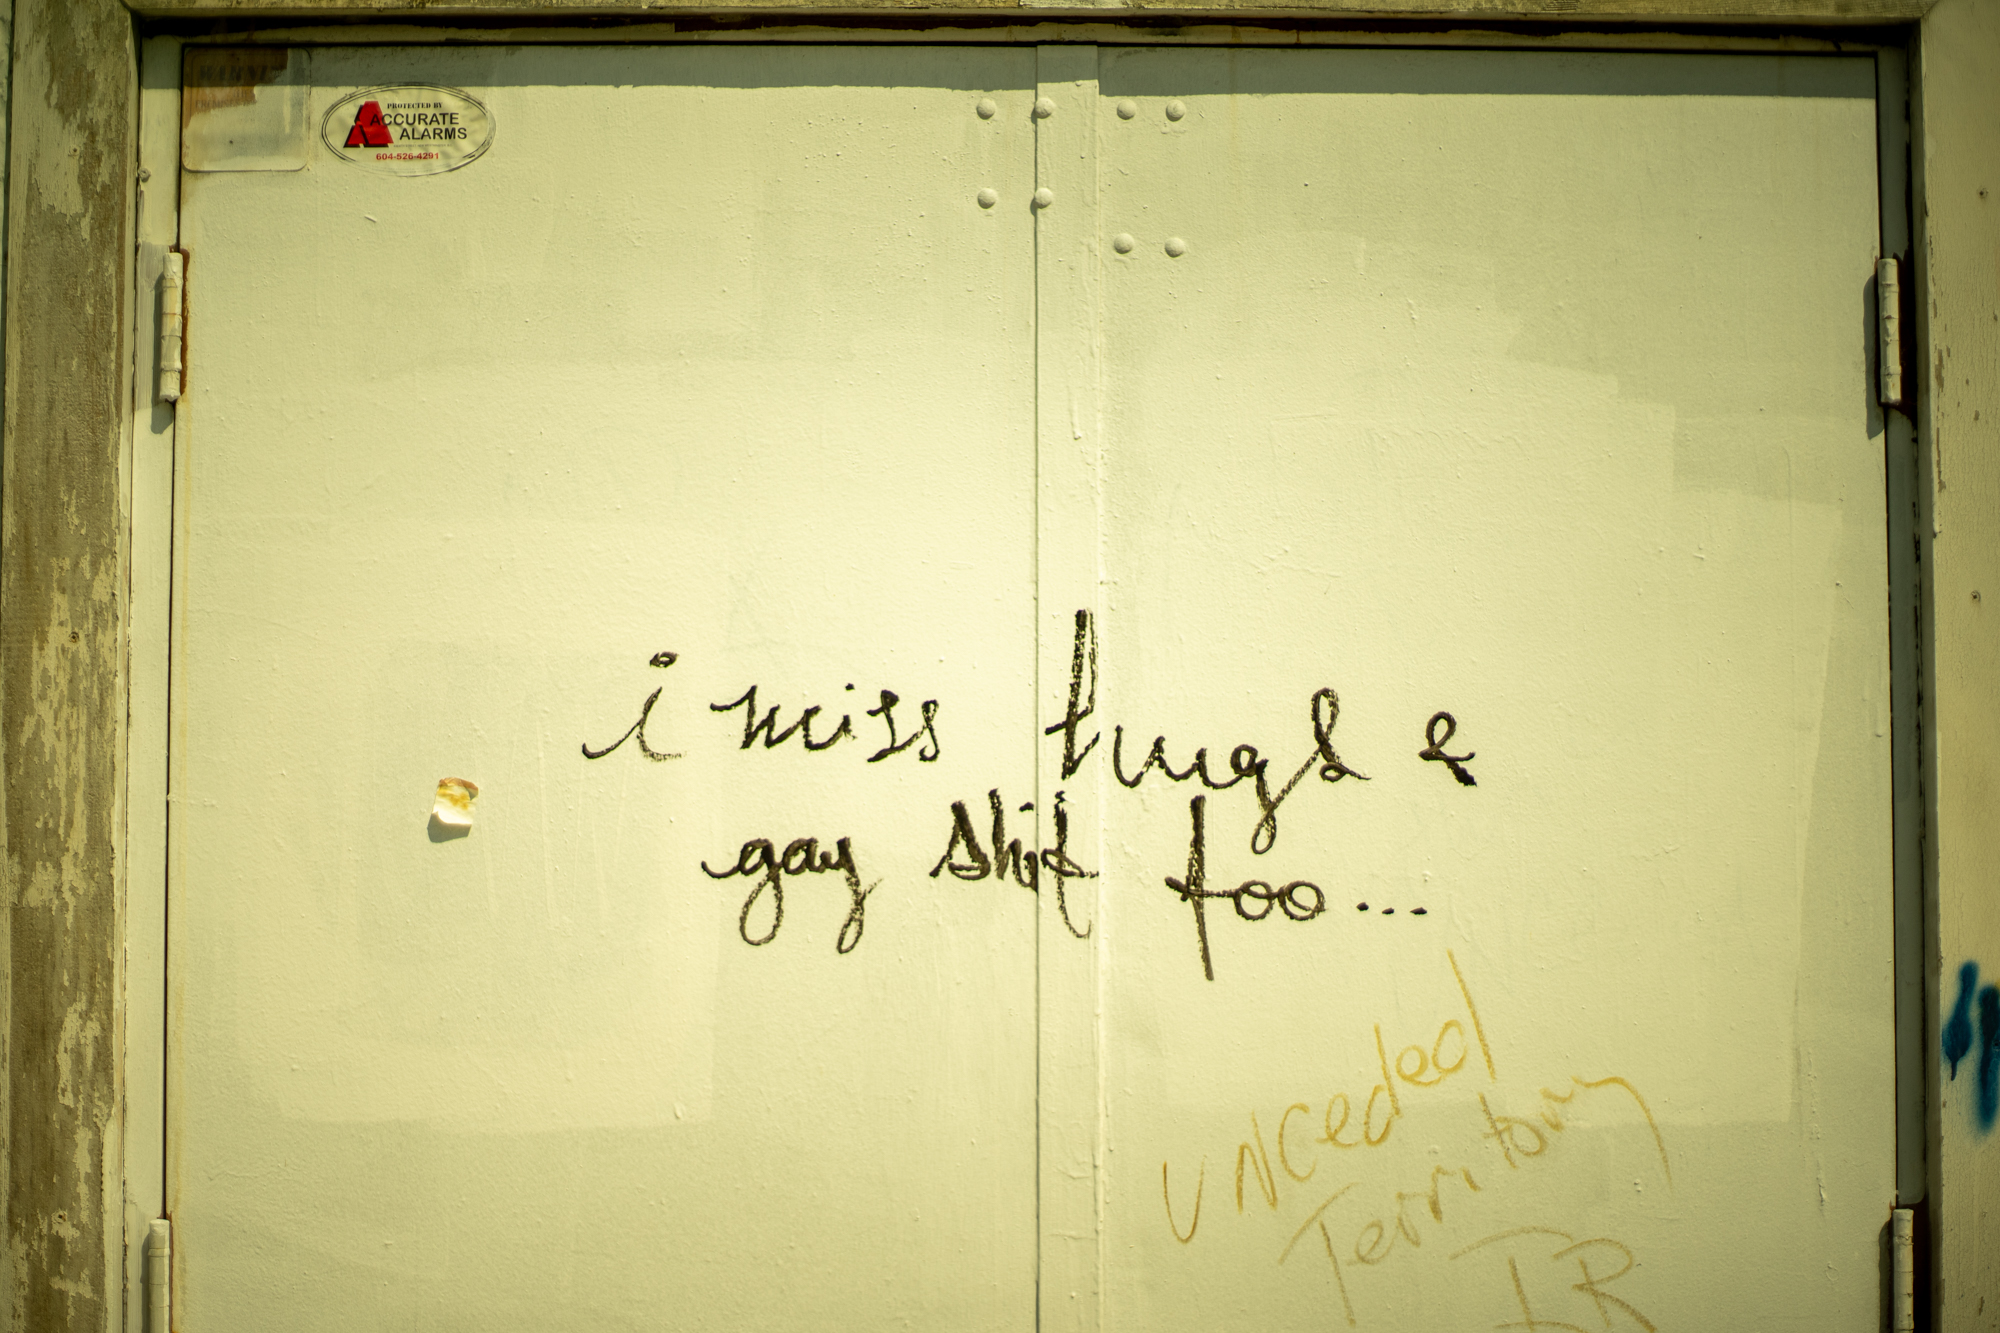 PROTECTED BY
ACCURATE
ALARMS
604-526-4291
i miss hugs &
gay shit too...
UNCeded
Territory
IR